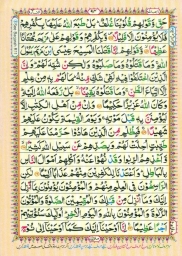 حَقٍّ وَّقَوْلِهِمْ قُلُوْبُنَا غُلْفٌ بَلْ طَبَعَ اللّٰهُ عَلَيْهَا بِكُفْرِهِمْ
فَلَا يُؤْمِنُوْنَ اِلَّا قَلِيْلًا وَّبِكُفْرِهِمْ وَقَوْلِهِمْ عَلٰى مَرْيَمَ بُهْتَانًا
عَظِيْمًا وَّقَوْلِهِمْ اِنَّا قَتَلْنَا الْمَسِيْحَ عِيْسَى ابْنَ مَرْيَمَ رَسُوْلَ
اللّٰهِ وَمَا قَتَلُوْهُ وَمَا صَلَبُوْهُ وَلٰكِنْ شُبِّهَ لَهُمْ وَاِنَّ
الَّذِيْنَ اخْتَلَفُوْا فِيْهِ لَفِيْ شَكٍّ مِّنْهُ مَا لَهُمْ بِهٖ مِنْ عِلْمٍ
اِلَّا اتِّبَاعَ الظَّنِّ وَمَا قَتَلُوْهُ يَقِيْنًا بَلْ رَّفَعَهُ اللّٰهُ اِلَيْهِ
وَكَانَ اللّٰهُ عَزِيْزًا حَكِيْمًا وَاِنْ مِّنْ اَهْلِ الْكِتٰبِ اِلَّا
لَيُؤْمِنَنَّ بِهٖ قَبْلَ مَوْتِهٖ وَيَوْمَ الْقِيٰمَةِ يَكُوْنُ عَلَيْهِمْ
شَهِيْدًا فَبِظُلْمٍ مِّنَ الَّذِيْنَ هَادُوْا حَرَّمْنَا عَلَيْهِمْ
طَيِّبٰتٍ اُحِلَّتْ لَهُمْ وَبِصَدِّهِمْ عَنْ سَبِيْلِ اللّٰهِ كَثِيْرًا
وَّاَخْذِهِمُ الرِّبٰوا وَقَدْ نُهُوْا عَنْهُ وَاَكْلِهِمْ اَمْوَالَ النَّاسِ
بِالْبَاطِلِ وَاَعْتَدْنَا لِلْكٰفِرِيْنَ مِنْهُمْ عَذَابًا اَلِيْمًا لٰكِنِ
الرّٰسِخُوْنَ فِي الْعِلْمِ مِنْهُمْ وَالْمُؤْمِنُوْنَ يُؤْمِنُوْنَ بِمَآ اُنْزِلَ
اِلَيْكَ وَمَآ اُنْزِلَ مِنْ قَبْلِكَ وَالْمُقِيْمِيْنَ الصَّلٰوةَ وَالْمُؤْتُوْنَ
الزَّكٰوةَ وَالْمُؤْمِنُوْنَ بِاللّٰهِ وَالْيَوْمِ الْاٰخِرِ اُولٰٓئِكَ سَنُؤْتِيْهِمْ
اَجْرًا عَظِيْمًا اِنَّآ اَوْحَيْنَآ اِلَيْكَ كَمَآ اَوْحَيْنَآ اِلٰى نُوْحٍ